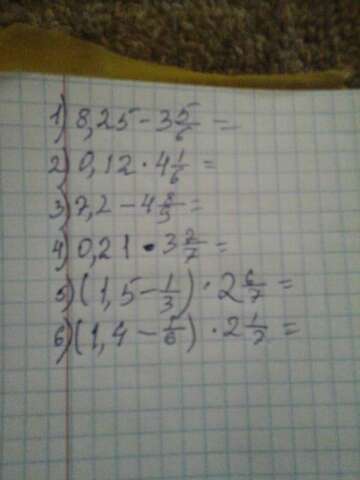 1) 8,25 - 3 5/6 =
2) 0,12 · 4 1/6 =
3) 7,2 - 4 8/9 =
4) 0,21 · 3 2/7 =
5) (1,5 - 1/3) · 2 6/7 =
6) (1,4 - 1/6) · 2 1/7 =